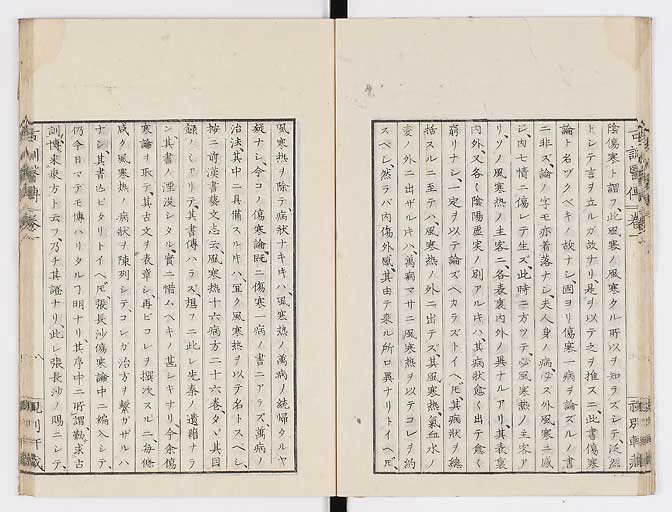 陰傷寒ト謂フ此風寒ノ風寒タル所以ヲ知ラズシテ、泛然
トシテ言ヲ立ルガ故ナリ是ヲ以テ之ヲ推スニ、此書傷寒
論ト名ヅクベキノ故ナシ固ヨリ傷寒一病ヲ論ズルノ書
ニ非ズ、論ノ字モ亦着落ナシ、夫人身ノ病、必ズ外風寒ニ感
ジ、内七情ニ傷レテ生ズ、此時ニ方ツテ、必風寒熱ノ主客ア
リ、ソノ風寒熱ノ主客ニ、各表裏内外ノ異ナルアリ、其表裏
内外、又各〻陰陽虚実ノ別アル片ハ、其病状愈〻出テ愈〻
窮リナシ、一定ヲ以テ論ズベカラズトイヘ𪜈、其病状ヲ総
括スルニ至テハ、風寒熱ノ外ニ出デズ、其風寒熱、氣血水ノ
変ノ外ニ出ザル片ハ、萬病マサニ風寒熱ヲ以テコレヲ約
スベシ、然ラバ内傷外感、其由テ来ル所ロ異ナリトイヘ𪜈、
風寒熱ヲ除テ病状ナキ片ハ、風寒熱ノ萬病ノ統帰タルヤ
疑ナシ、今コノ傷寒論、既ニ傷寒一病ノ書ニアラズ、萬病ノ
治法、其中ニ具備スル片ハ、宜ク風寒熱ヲ以テ名トスベシ、
按ニ前漢書藝文志云風寒熱十六病方二十六巻タヾ其目
録ノミアリテ、其書傳ハラズ、想フニ此レ先秦ノ遺籍ナラ
ン、其書ノ湮没シタル、實ニ惜ムベキノ甚シキナリ今余傷
寒論ヲ取テ、其古文ヲ表章シ、再ビコレヲ撰次スルニ、毎條
咸ク風寒熱ノ病状ヲ陳列シテ、コレガ治方ヲ繫ガザルハ
ナシ、其書凸ビタリトイヘ𪜈、張長沙傷寒論中ニ編入シテ、
仍今日マデモ傳ハリタルヿ明ナリ、其序中ニ所謂、勤求古
訓、博采衆方ト云フ、乃チ其證ナリ、此レ張長沙ノ賜ニシテ、